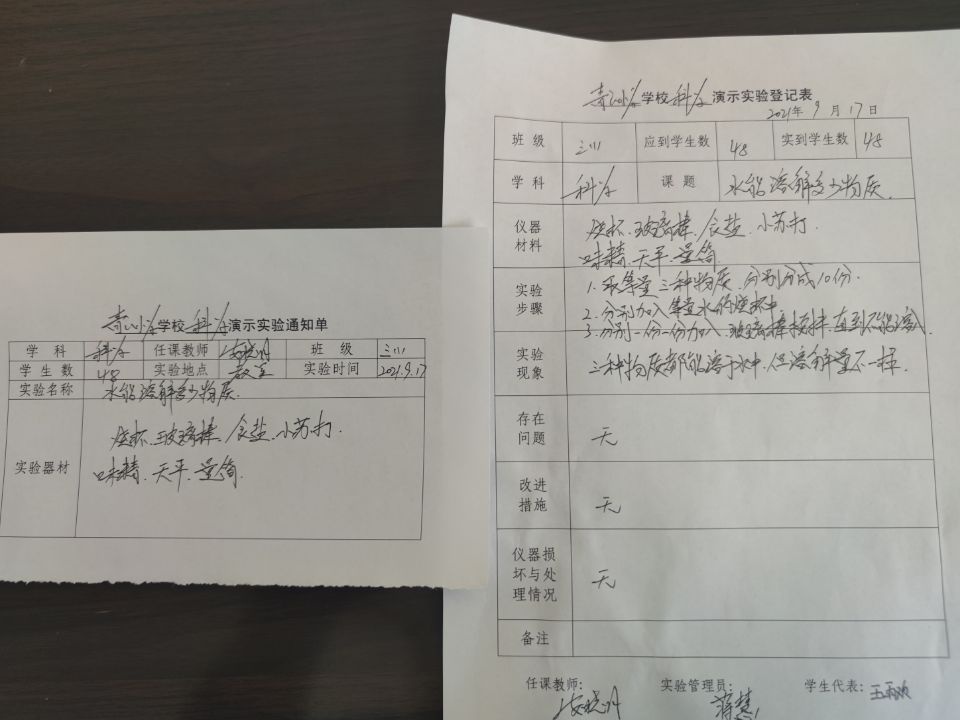 学校科学演示实验通知单
学科 科学 任课教师 班级 三(1)
学生数 48 实验地点 教室 实验时间 2021.9.17
实验名称 水能溶解多少物质
实验器材
烧杯、玻璃棒、食盐、小苏打、
味精、天平、量筒
学校科学演示实验登记表
2021年9月17日
班级 三(1) 应到学生数 48 实到学生数 48
学科 科学 课题 水能溶解多少物质
仪器材料
烧杯、玻璃棒、食盐、小苏打、
味精、天平、量筒
实验步骤
1. 取等量三种物质,分别分成10份.
2. 分别加入等量水的烧杯中
3. 分别一份一份加入,玻璃棒搅拌,直到不能溶
实验现象
三种物质都能溶于水中,但溶解量不一样.
存在问题
无
改进措施
无
仪器损坏与处理情况
无
备注
任课教师: 实验管理员: 学生代表: